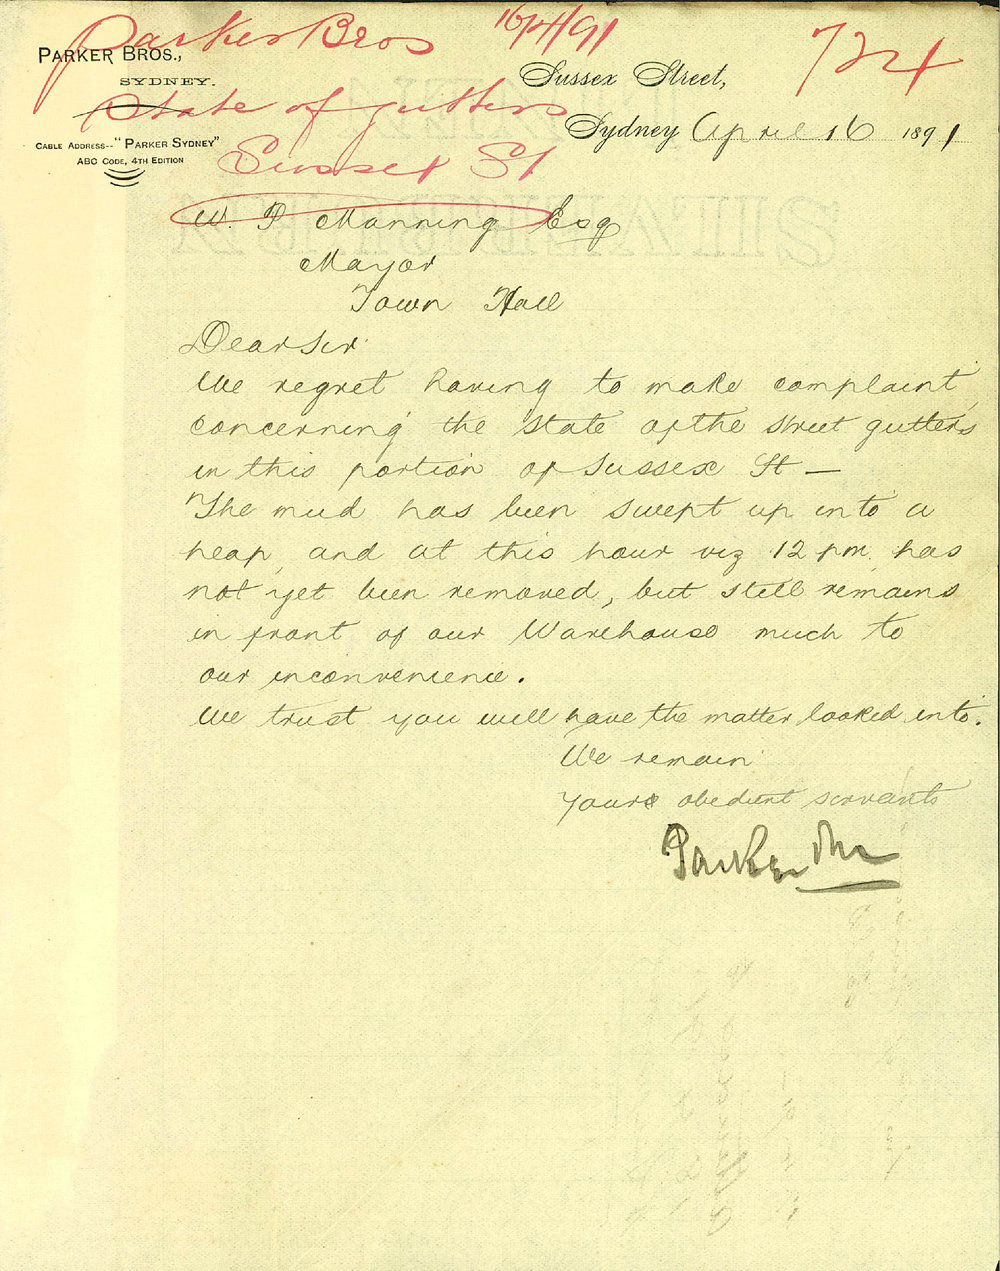 Parker Bros 16/4/91 724
State of gutters
Sussex St
PARKER BROS.,
SYDNEY.
CABLE ADDRESS--"PARKER SYDNEY"
ABC CODE, 4TH EDITION
Sussex Street,
Sydney April 16 1891
W. P Manning Esq
Mayor
Town Hall
Dear Sir
We regret having to make complaint,
concerning the state of the street gutters
in this portion of Sussex St —
The mud has been swept up into a
heap, and at this hour viz 12 pm. has
not yet been removed, but still remains
in front of our Warehouse much to
our inconvenience.
We trust you will have the matter looked into.
We remain
Yours obedient servants
Parker Bros